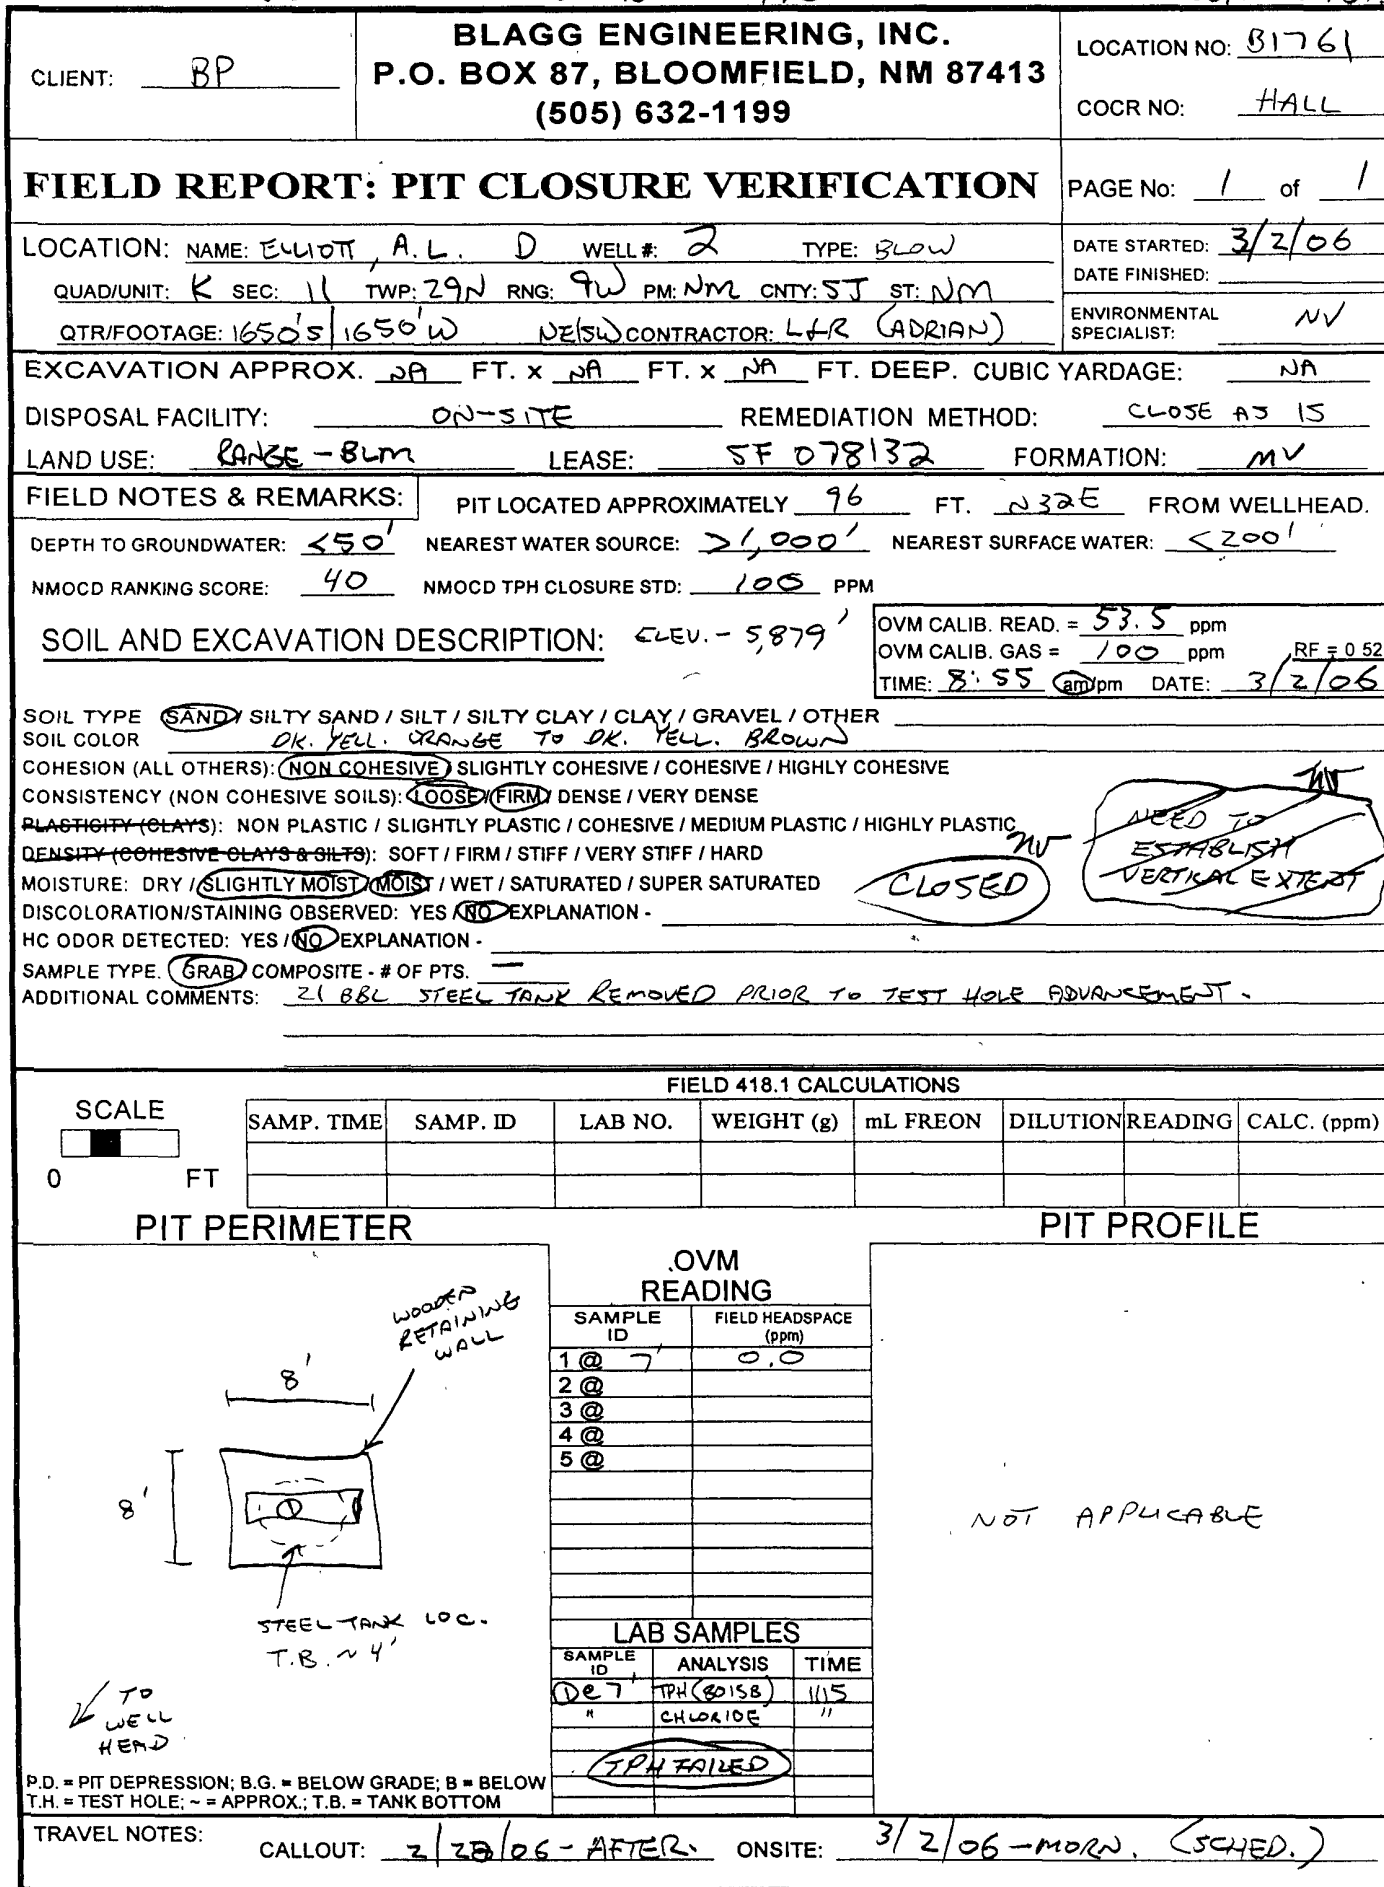 BLAGG ENGINEERING, INC.
P.O. BOX 87, BLOOMFIELD, NM 87413
(505) 632-1199
CLIENT: BP
LOCATION NO: B1761
COCR NO: HALL
FIELD REPORT: PIT CLOSURE VERIFICATION
PAGE No: 1 of 1
LOCATION: NAME: ELLIOTT, A.L. D WELL #: 2 TYPE: BLOW
QUAD/UNIT: K SEC: 11 TWP: 29N RNG: 9W PM: NM CNTY: SJ ST: NM
QTR/FOOTAGE: 1650'S/1650'W NE/SW CONTRACTOR: L&R (ADRIAN)
DATE STARTED: 3/2/06
DATE FINISHED:
ENVIRONMENTAL SPECIALIST: NV
EXCAVATION APPROX. NA FT. x NA FT. x NA FT. DEEP. CUBIC YARDAGE: NA
DISPOSAL FACILITY: ON-SITE REMEDIATION METHOD: CLOSE AS IS
LAND USE: RANGE - BLM LEASE: SF 078132 FORMATION: MV
FIELD NOTES & REMARKS: PIT LOCATED APPROXIMATELY 96 FT. N32E FROM WELLHEAD.
DEPTH TO GROUNDWATER: <50' NEAREST WATER SOURCE: >1,000' NEAREST SURFACE WATER: <200'
NMOCD RANKING SCORE: 40 NMOCD TPH CLOSURE STD: 100 PPM
SOIL AND EXCAVATION DESCRIPTION: ELEV. - 5,879'
OVM CALIB. READ. = 53.5 ppm
OVM CALIB. GAS = 100 ppm RF = 0 52
TIME: 8:55 am/pm DATE: 3/2/06
SOIL TYPE SAND / SILTY SAND / SILT / SILTY CLAY / CLAY / GRAVEL / OTHER
SOIL COLOR DK. YELL. ORANGE TO DK. YELL. BROWN
COHESION (ALL OTHERS): NON COHESIVE / SLIGHTLY COHESIVE / COHESIVE / HIGHLY COHESIVE
CONSISTENCY (NON COHESIVE SOILS): LOOSE / FIRM / DENSE / VERY DENSE
PLASTICITY (CLAYS): NON PLASTIC / SLIGHTLY PLASTIC / COHESIVE / MEDIUM PLASTIC / HIGHLY PLASTIC
DENSITY (COHESIVE CLAYS & SILTS): SOFT / FIRM / STIFF / VERY STIFF / HARD
MOISTURE: DRY / SLIGHTLY MOIST / MOIST / WET / SATURATED / SUPER SATURATED
DISCOLORATION/STAINING OBSERVED: YES / NO EXPLANATION -
HC ODOR DETECTED: YES / NO EXPLANATION -
SAMPLE TYPE. GRAB / COMPOSITE - # OF PTS. —
ADDITIONAL COMMENTS: 21 BBL STEEL TANK REMOVED PRIOR TO TEST HOLE ADVANCEMENT.
NV
NEED TO
ESTABLISH
VERTICAL EXTENT
NV
CLOSED
FIELD 418.1 CALCULATIONS
SCALE
0 FT
SAMP. TIME SAMP. ID LAB NO. WEIGHT (g) mL FREON DILUTION READING CALC. (ppm)
PIT PERIMETER
PIT PROFILE
WOODEN
RETAINING
WALL
8'
8'
1
STEEL TANK LOC.
T.B. ~ 4'
TO
WELL
HEAD
P.D. = PIT DEPRESSION; B.G. = BELOW GRADE; B = BELOW
T.H. = TEST HOLE; ~ = APPROX.; T.B. = TANK BOTTOM
OVM
READING
SAMPLE ID FIELD HEADSPACE (ppm)
1 @ 7' 0.0
2 @
3 @
4 @
5 @
LAB SAMPLES
SAMPLE ID ANALYSIS TIME
1@7' TPH (8015B) 1115
" CHLORIDE "
TPH FAILED
NOT APPLICABLE
TRAVEL NOTES: CALLOUT: 2/28/06 - AFTER. ONSITE: 3/2/06 - MORN. (SCHED.)